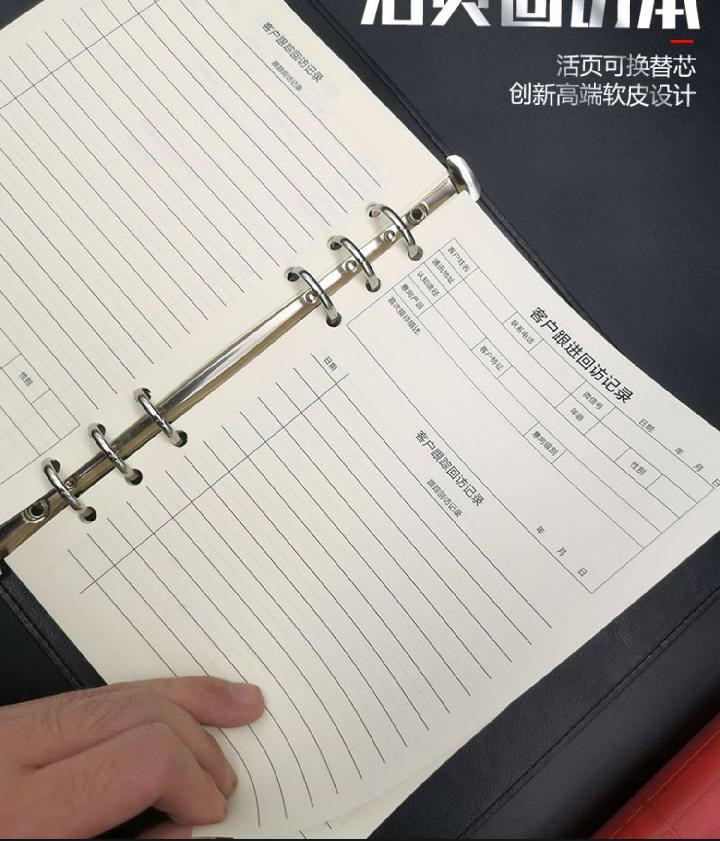 活页回访本
活页可换替芯
创新高端软皮设计
客户跟踪回访记录
跟踪回访记录
性别
客户跟进回访记录
日期: 年 月 日
客户姓名 联系电话 微信号 性别
通讯地址
认知途径 客户特征 年龄
意向产品 意向级别
首次接待描述:
年 月 日
客户跟踪回访记录
日期 跟踪回访记录